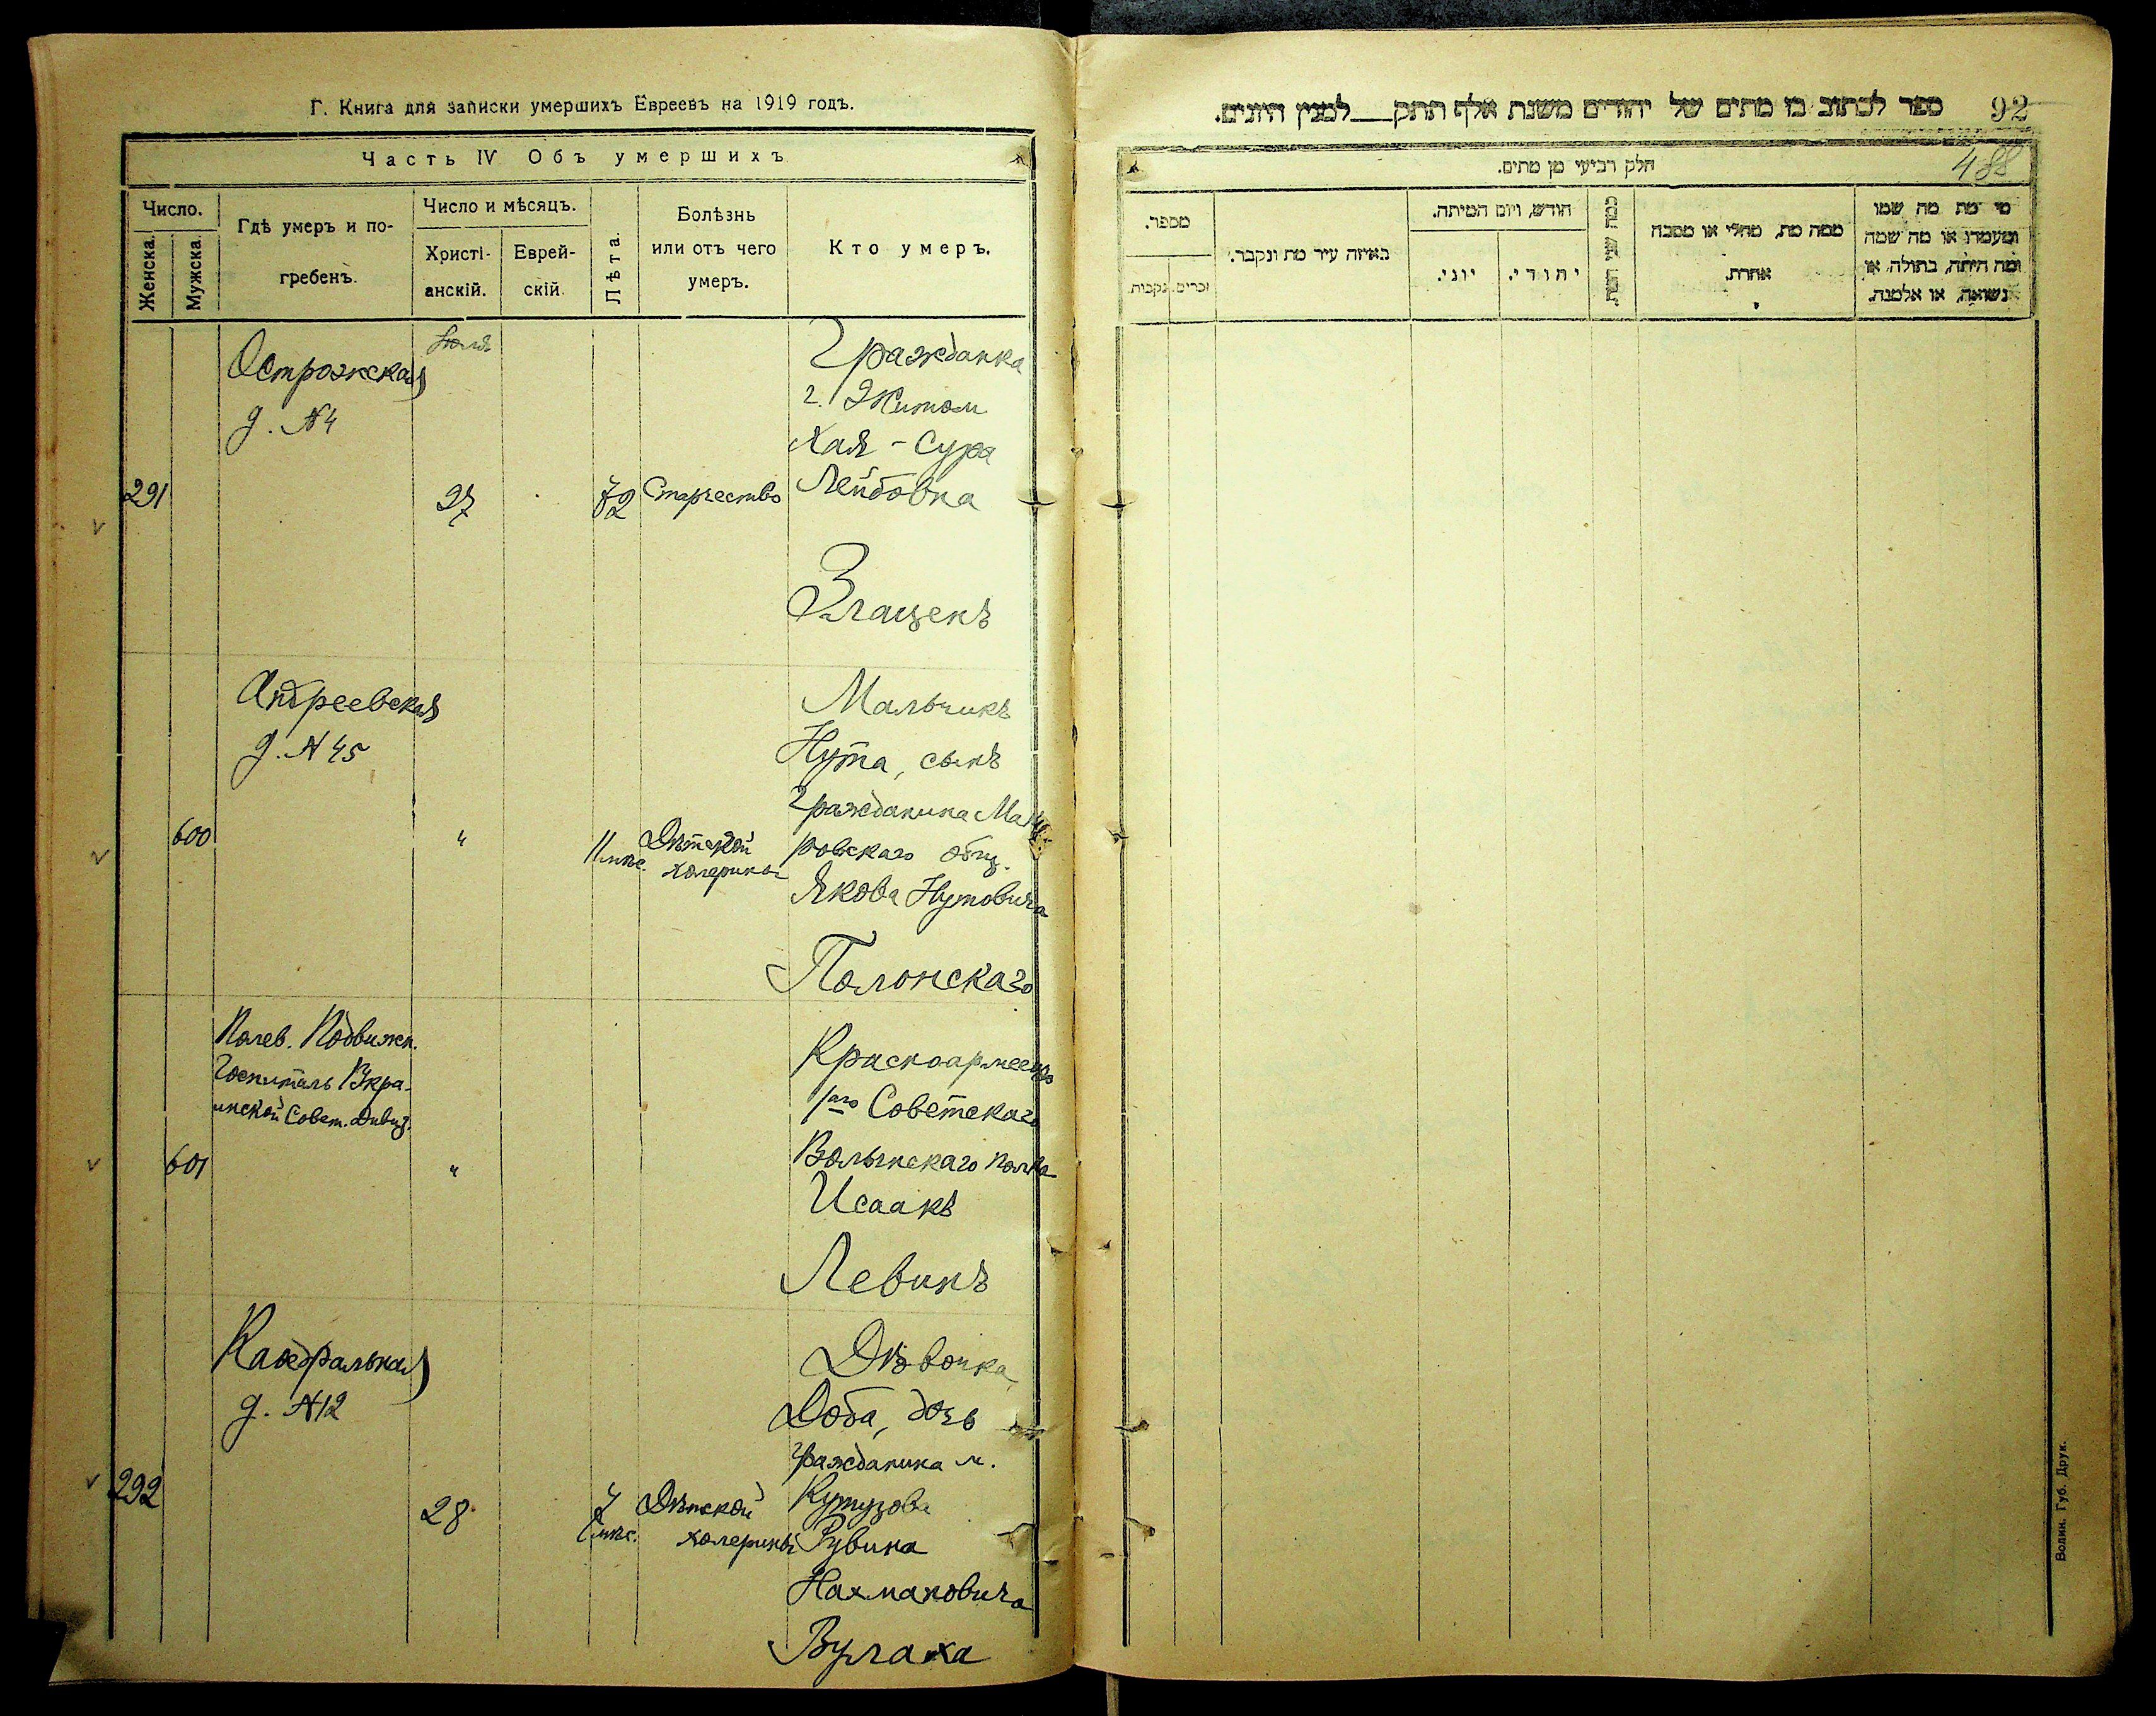 Г. Книга для записки умершихъ Евреевъ на 1919 годъ.
Часть IV Объ умершихъ
Число.
Женска.
Мужска.
Гдѣ умеръ и по-
гребенъ.
Число и мѣсяцъ.
Христі-
анскій.
Еврей-
скій.
Лѣта.
Болѣзнь
или отъ чего
умеръ.
Кто умеръ.
Острожская
д. №4
Іюля
291
27
72
Старчество
Гражданка
г. Житом.
Хая - Сура
Лейбовна
Злащенъ
Андреевская
д. № 45
600
"
11 мѣс.
Дѣтской
холерины
Мальчикъ
Нута, сынъ
гражданина
ровскаго общ.
Якова Нутовича
Полонскаго
Полев. Подвижн.
Госпиталь Вкра-
инской Совет. Дивиз.
601
"
Красноармеецъ
1го Советскаго
Волынскаго полка
Исаакъ
Левинъ
Кафедральная
д. №12
292
28
7
мѣс.
Дѣтской
холерины
Дѣвочка
Доба, дочь
гражданина м.
Кутузова
Рувина
Нахмановича
Вулаха
92
ספר לכתוב בו מתים של יהודים משנת אלף תתק למנין היונים.
488
חלק רביעי מן מתים.
מספר.
זכרים.
נקבות.
באיזה עיר מת ונקבר.
חודש, ויום המיתה.
יוני.
יהודי.
ממה מת, מחלי או מסבה
אחרת.
מי מת מה שמו
ומעמדו או מה שמה
ומה היתה, בתולה, או
נשואה, או אלמנה.
Волин. Губ. Друк.